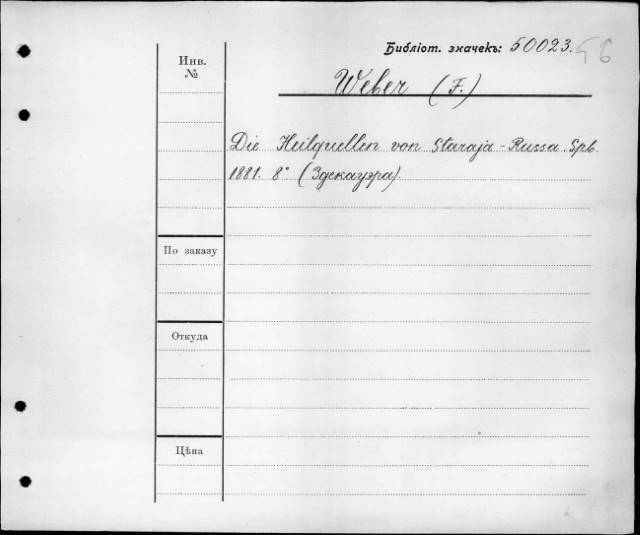 Библіот. значекъ: 50023.
Инв.
№
Weber (F.)
Die Heilquellen von Staraja-Russa. Spb.
1881. 8° (Здекауэра).
По заказу
Откуда
Цѣна